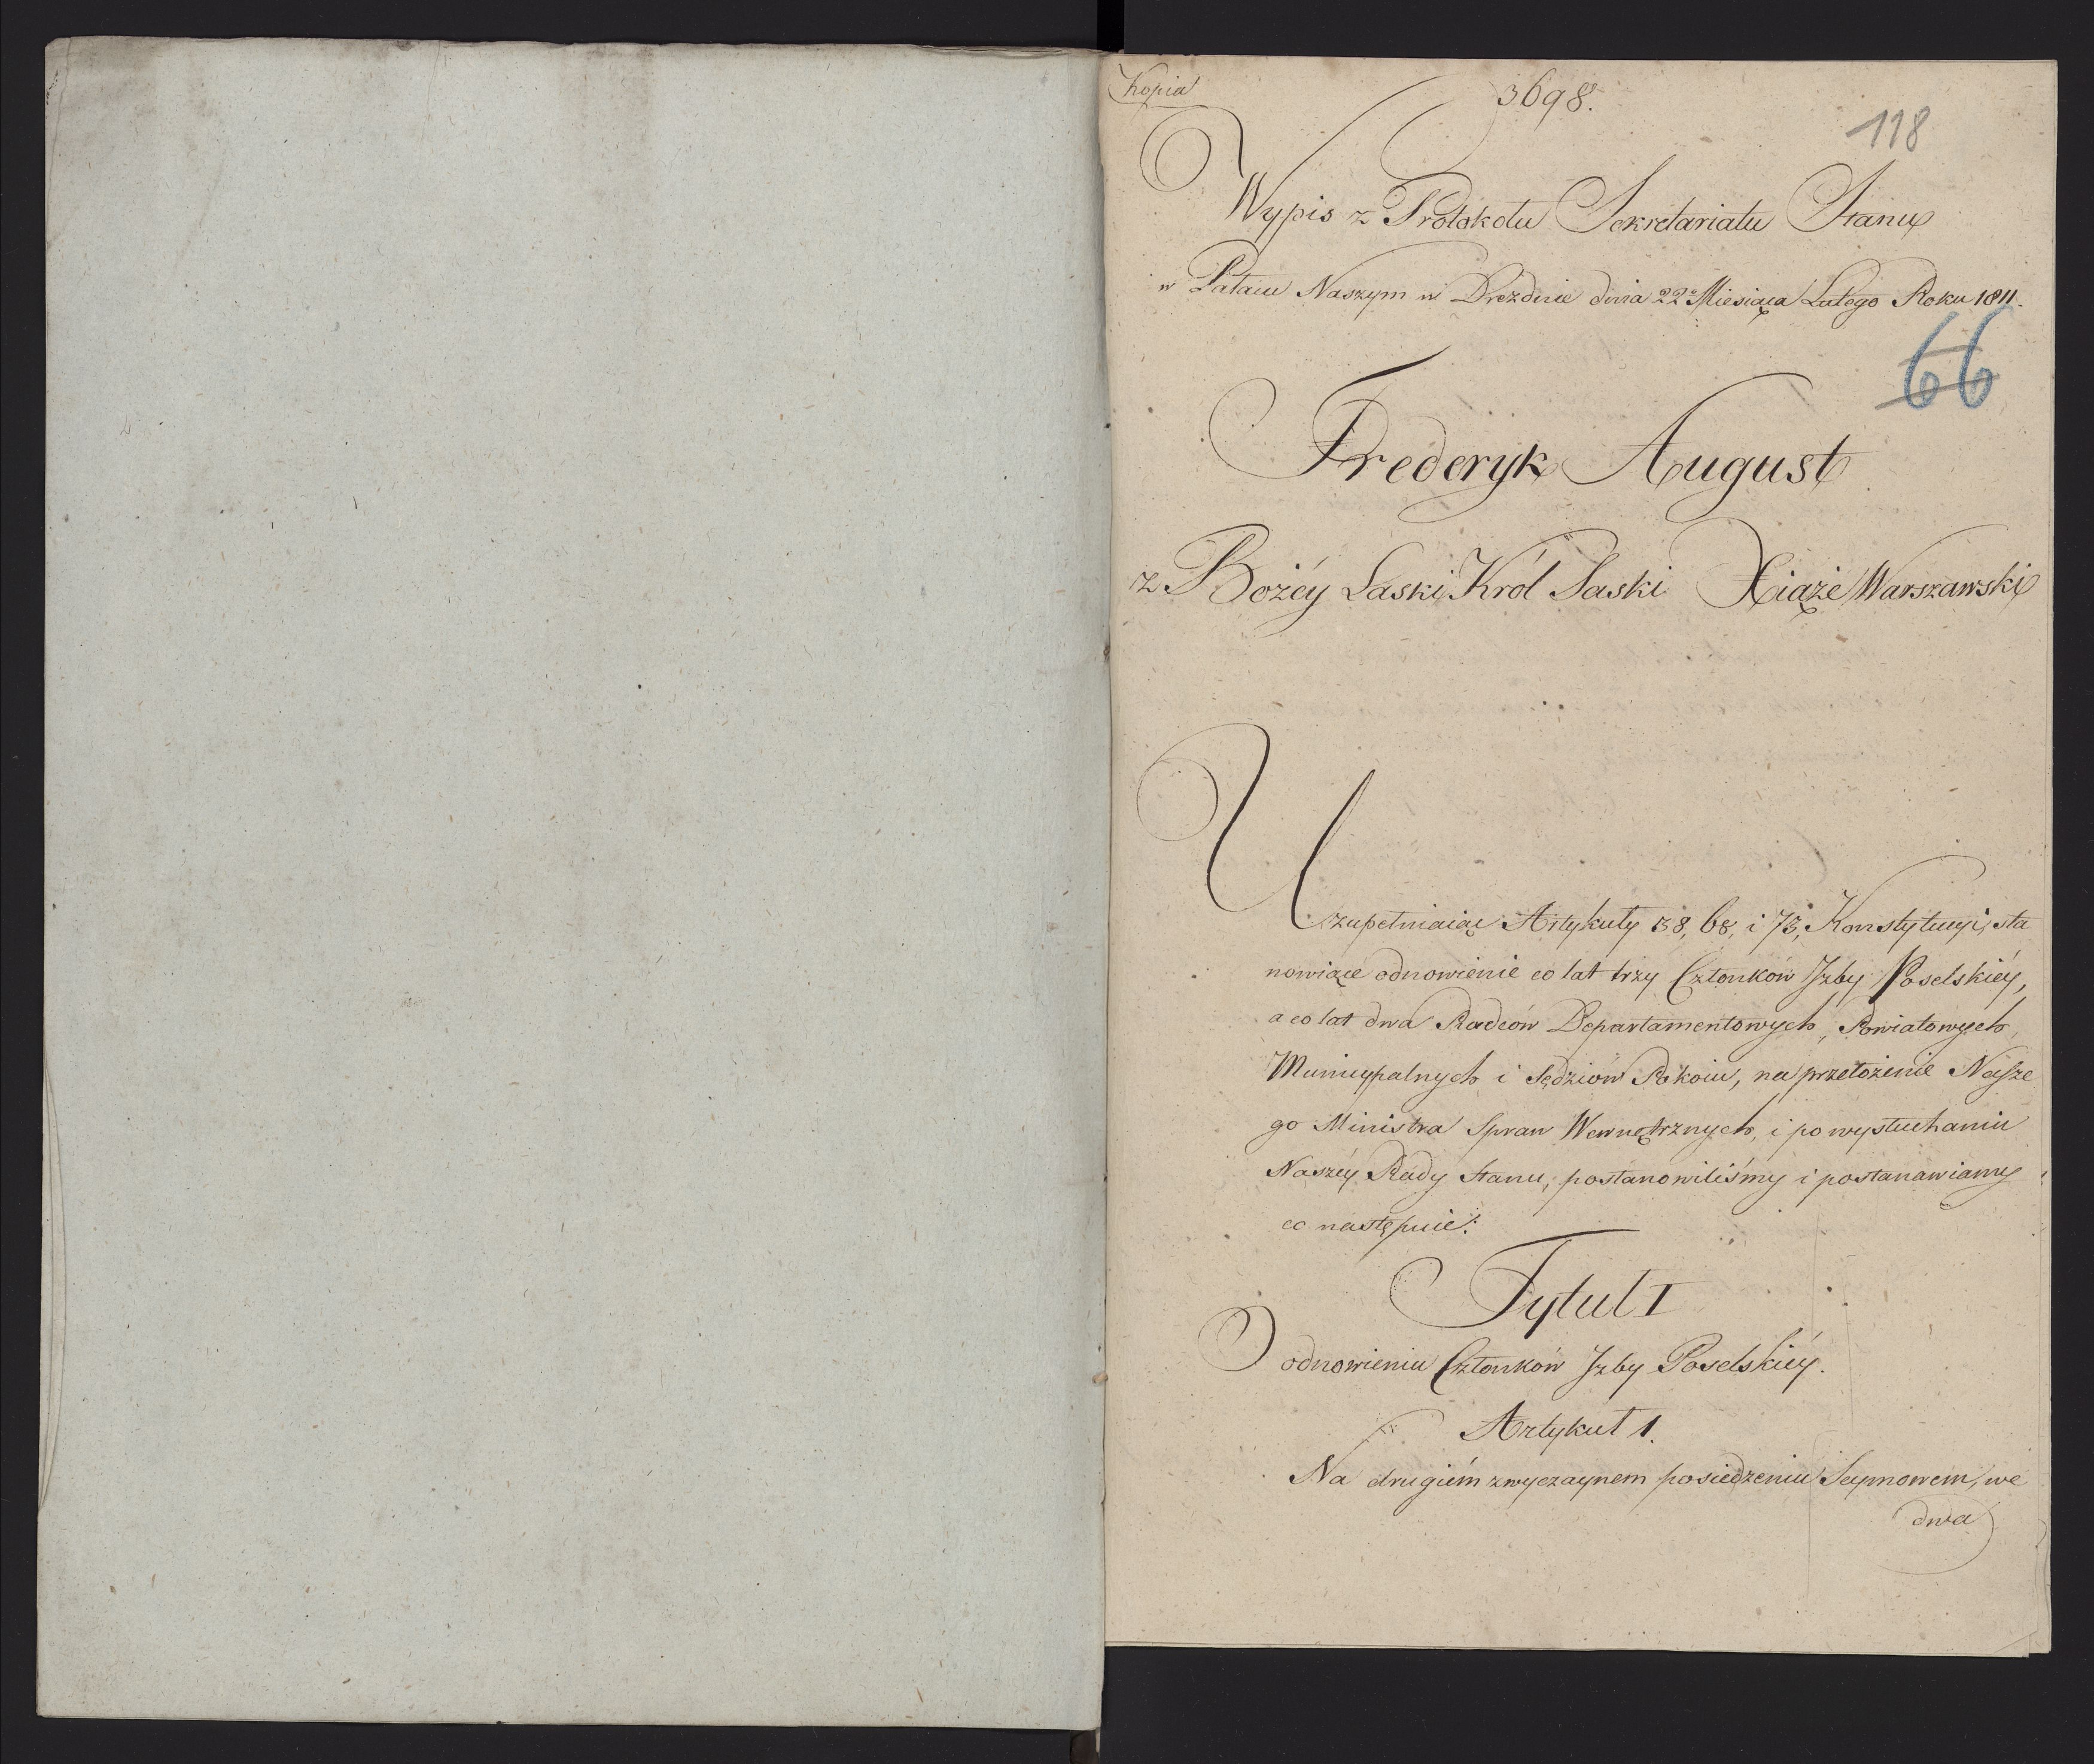 Kopia
3698.
118
Wypis z Protokołu Sekretariatu Stanu
w Pałacu Naszym w Dreźdnie dnia 22º Miesiąca Lutego Roku 1811.
66
Frederyk August
z Bożéy Łaski Król Saski Xiąże Warszawski
Uzupełniaiąc Artykuły 38, 68, i 73, Konstytucyi, sta
nowiące odnowienie co lat trzy Członków Jzby Poselskiéy,
a co lat dwa Radców Departamentowych, Powiatowych,
Municypalnych i Sędziów Pokoiu, na przełożenie Nasze
go Ministra Spraw Wewnętrznych, i po wysłuchaniu
Naszéy Rady Stanu, postanowiliśmy i postanawiamy
co następuie:
Tytuł I
O odnowieniu Członków Jzby Poselskiéy.
Artykuł 1.
Na drugiém zwyczaynem posiedzeniu Seymowem, we
dwa